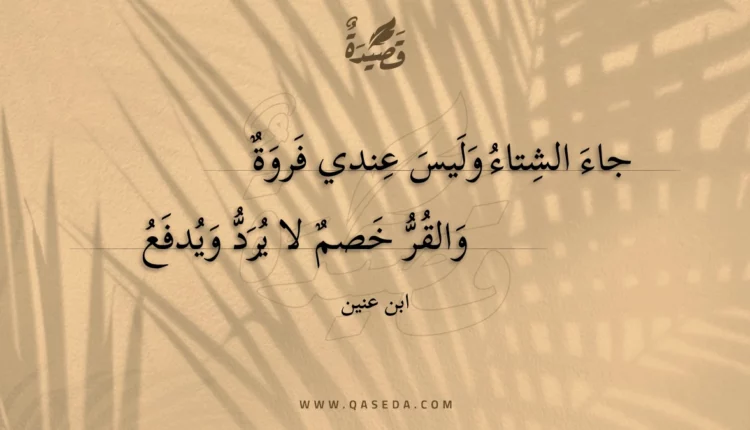 قَصِيْدَةٌ
جاءَ الشِتاءُ وَلَيسَ عِندي فَروَةٌ
وَالقُرُّ خَصمٌ لا يُرَدُّ وَيُدفَعُ
ابن عنين
WWW.QASEDA.COM